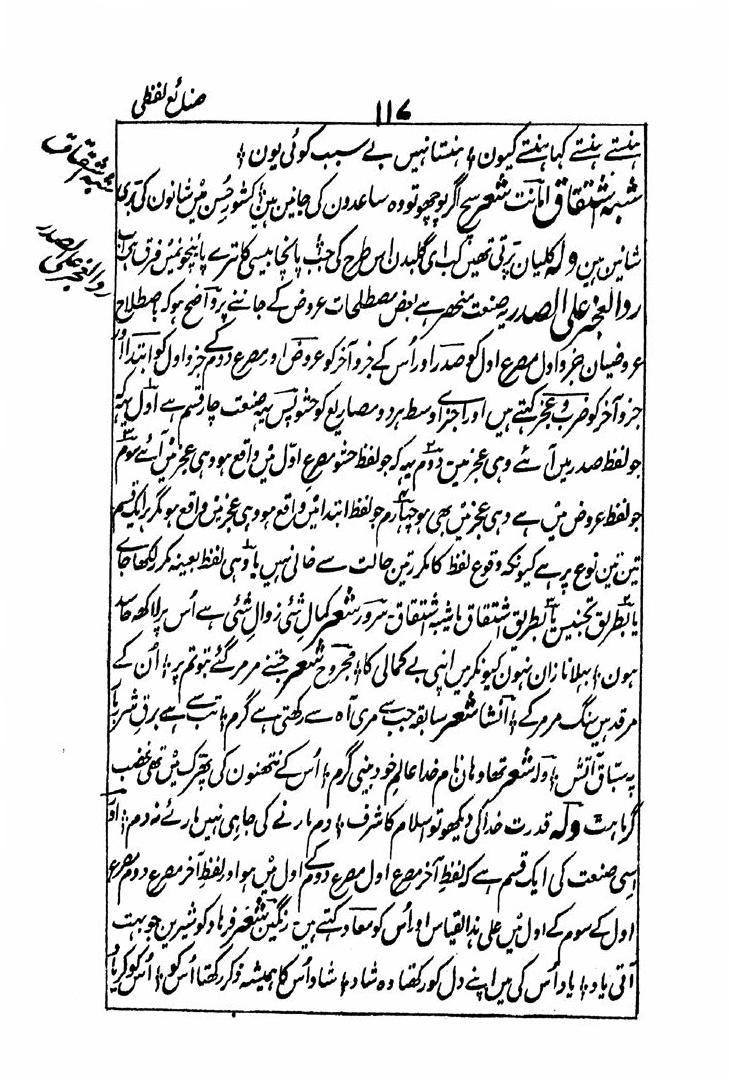 صنائع لفظی
۱۱۶
ہنستے ہنستے کہا ہنستے کیون ؛ ہنستا نہیں بے سبب کوئی یون ؛
شبہ اشتقاق
شبہ اشتقاق امانت شعر سچ اگر پوچھو تو وہ ساعدون کی جانین ہین ؛ کشور حُسن مین شانون کی بڑی
شانین ہین ولہ کلیان پرتی تھیں کب ای گلبدن اس طرح کی جب پانچا بیسی کا ترے پائنچو نمین فرق ہی اب
رد العجز علی الصدر
رد العجز علی الصدر یہ صنعت منحصر ہے بعض مصطلحات عروض کے جاننے پر واضح ہو کہ باصطلاح
عروضیان جزو اول مصرع اول کو صدر اور اُس کے جزو آخر کو عروض اور مصرع دوم کے جزو اول کو ابتدا اور
جزو آخر کو ضرب و عجز کہتے ہیں اور اجزاے اوسط ہر دو مصاریع کو حشو پس یہ صنعت چار قسم ہے اول یہ کہ
جو لفظ صدر میں آئے وہی عجز مین دوم یہ کہ جو لفظ حشو مصرع اوّل میں واقع ہو وہی عجز میں آئے سوم
جو لفظ عروض میں ہے وہی عجز میں بھی ہو چہارم جو لفظ ابتدا میں واقع ہو وہی عجز میں واقع ہو مگر ہر ایک قسم
تین تین نوع پر ہے کیونکہ وقوع لفظ کا مکرر تین حالت سے خالی نہیں یا وہی لفظ بعینہ مکرر لکھا جاے
یا بطریق تجنیس یا بطریق اشتقاق یا شبہ اشتقاق سرور شعر کمالِ شئی زوالِ شئی ہے اُس پر لاکھ حاسد
ہون ؛ بھلا نازان نہون کیونکر میں اپنی بے کمالی کا ؛ مجروح شعر جتنے مر مر گئے بتو تم پر ؛ اُن کے
مرقد ہیں سنگ مرمر کے ؛ انشا شعر سابقہ جب سے مری آہ سے رکھتی ہے گرم ؛ تب سے ہے برق شرر بار
پہ سبّاق آتش ؛ ولہ شعر تھا وہان نام خدا عالم خود بینی گرم ؛ اُس کے نتھنون کی پھڑک میں تھی غضب
گرماہٹ ولہ قدرت خدا کی دیکھو تو اسلام کا شرف ؛ دم مارنے کی جا ہی نہیں ہارئے نہ دم ؛ اور
اسی صنعت کی ایک قسم ہے کہ لفظ آخر مصرع اول مصرع دوم کے اول میں ہو اور لفظ آخر مصرع دوم مصرع
اول کے سوم کے اول میں علی ہذا القیاس اور اُس کو معاد کہتے ہیں رنگین شعر فرہاد کو شیرین جو بہت
آتی یاد ؛ یاد اُس کی میں اپنے دل کو رکھتا وہ شاد ؛ شاد اُس کا ہمیشہ ذکر رکھتا اُس کو ؛ اُس کو کر یاد